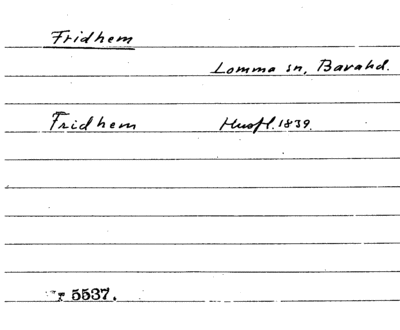 Fridhem
Lomma sn, Barahd.
Fridhem Husfl. 1839.
r 5537.